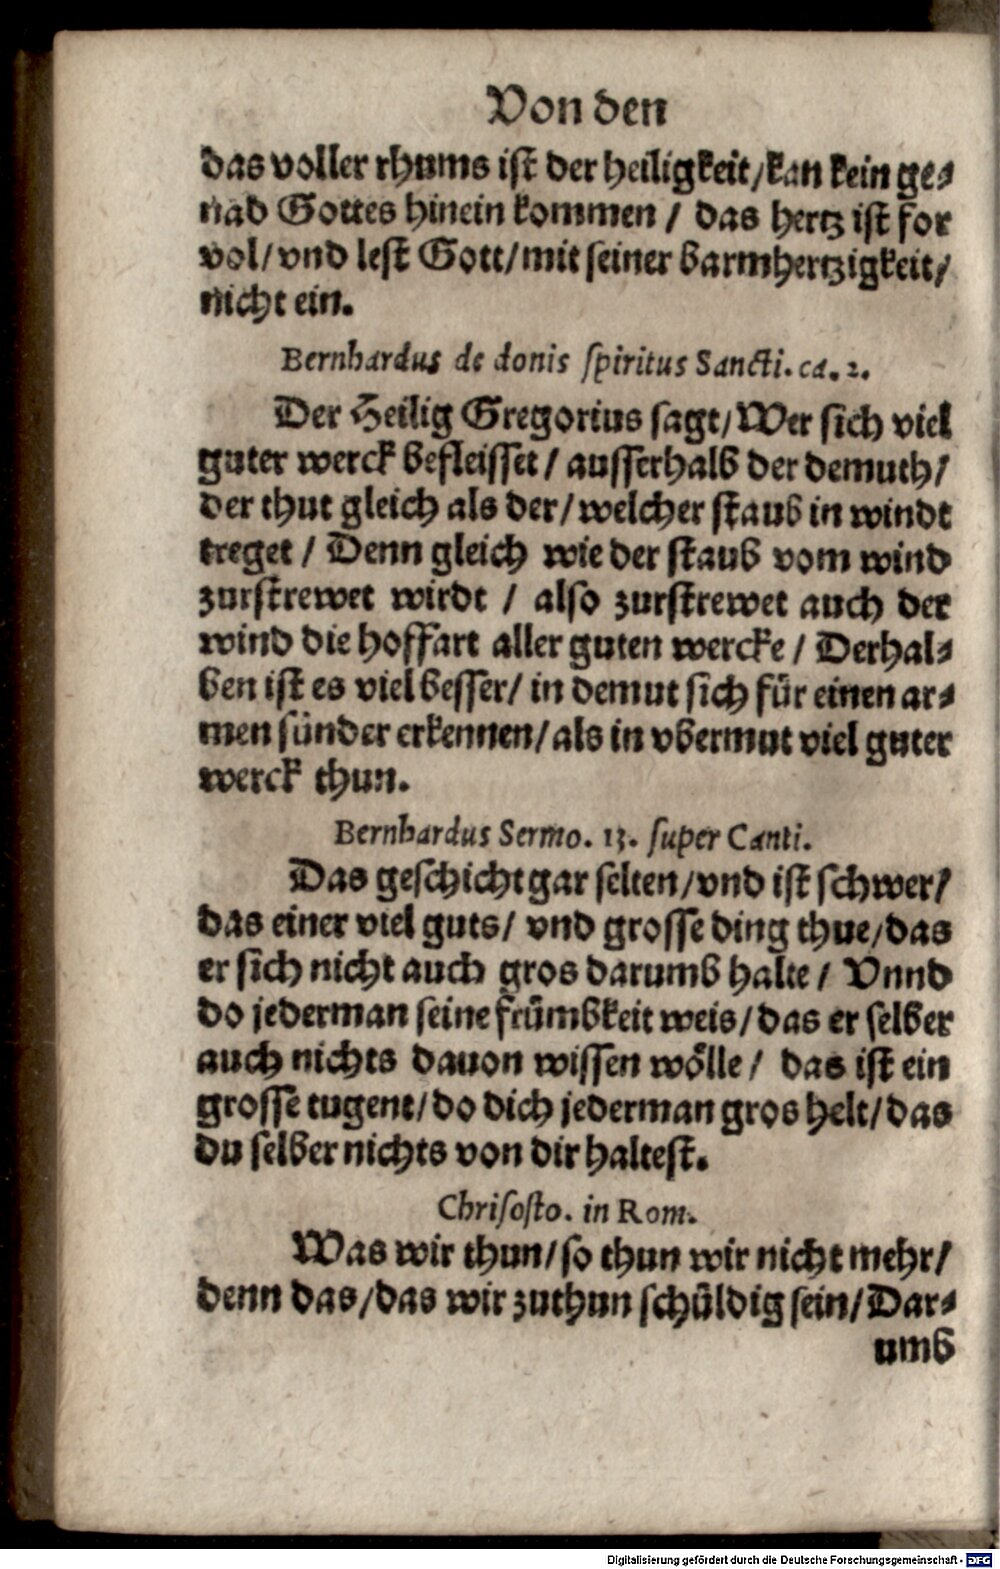 Von den
das voller rhums ist der heiligkeit/kan kein ge⸗
nad Gottes hinein kommen / das hertz ist for
vol/vnd lest Gott/mit seiner barmhertzigkeit/
nicht ein.
Bernhardus de donis spiritus Sancti. ca. 2.
Der Heilig Gregorius sagt/Wer sich viel
guter werck befleisset / ausserhalb der demuth/
der thut gleich als der/welcher staub in windt
treget / Denn gleich wie der staub vom wind
zurstrewet wirdt / also zurstrewet auch der
wind die hoffart aller guten wercke / Derhal⸗
ben ist es viel besser/ in demut sich für einen ar⸗
men sünder erkennen/als in vbermut viel guter
werck thun.
Bernhardus Sermo. 13. super Canti.
Das geschicht gar selten/vnd ist schwer/
das einer viel guts/ vnd grosse ding thue/das
er sich nicht auch gros darumb halte / Vnnd
do jederman seine frümbkeit weis/das er selber
auch nichts dauon wissen wölle / das ist ein
grosse tugent/do dich jederman gros helt/das
du selber nichts von dir haltest.
Chrisosto. in Rom.
Was wir thun/so thun wir nicht mehr/
denn das/das wir zuthun schüldig sein/Dar⸗
umb
Digitalisierung gefördert durch die Deutsche Forschungsgemeinschaft - DFG